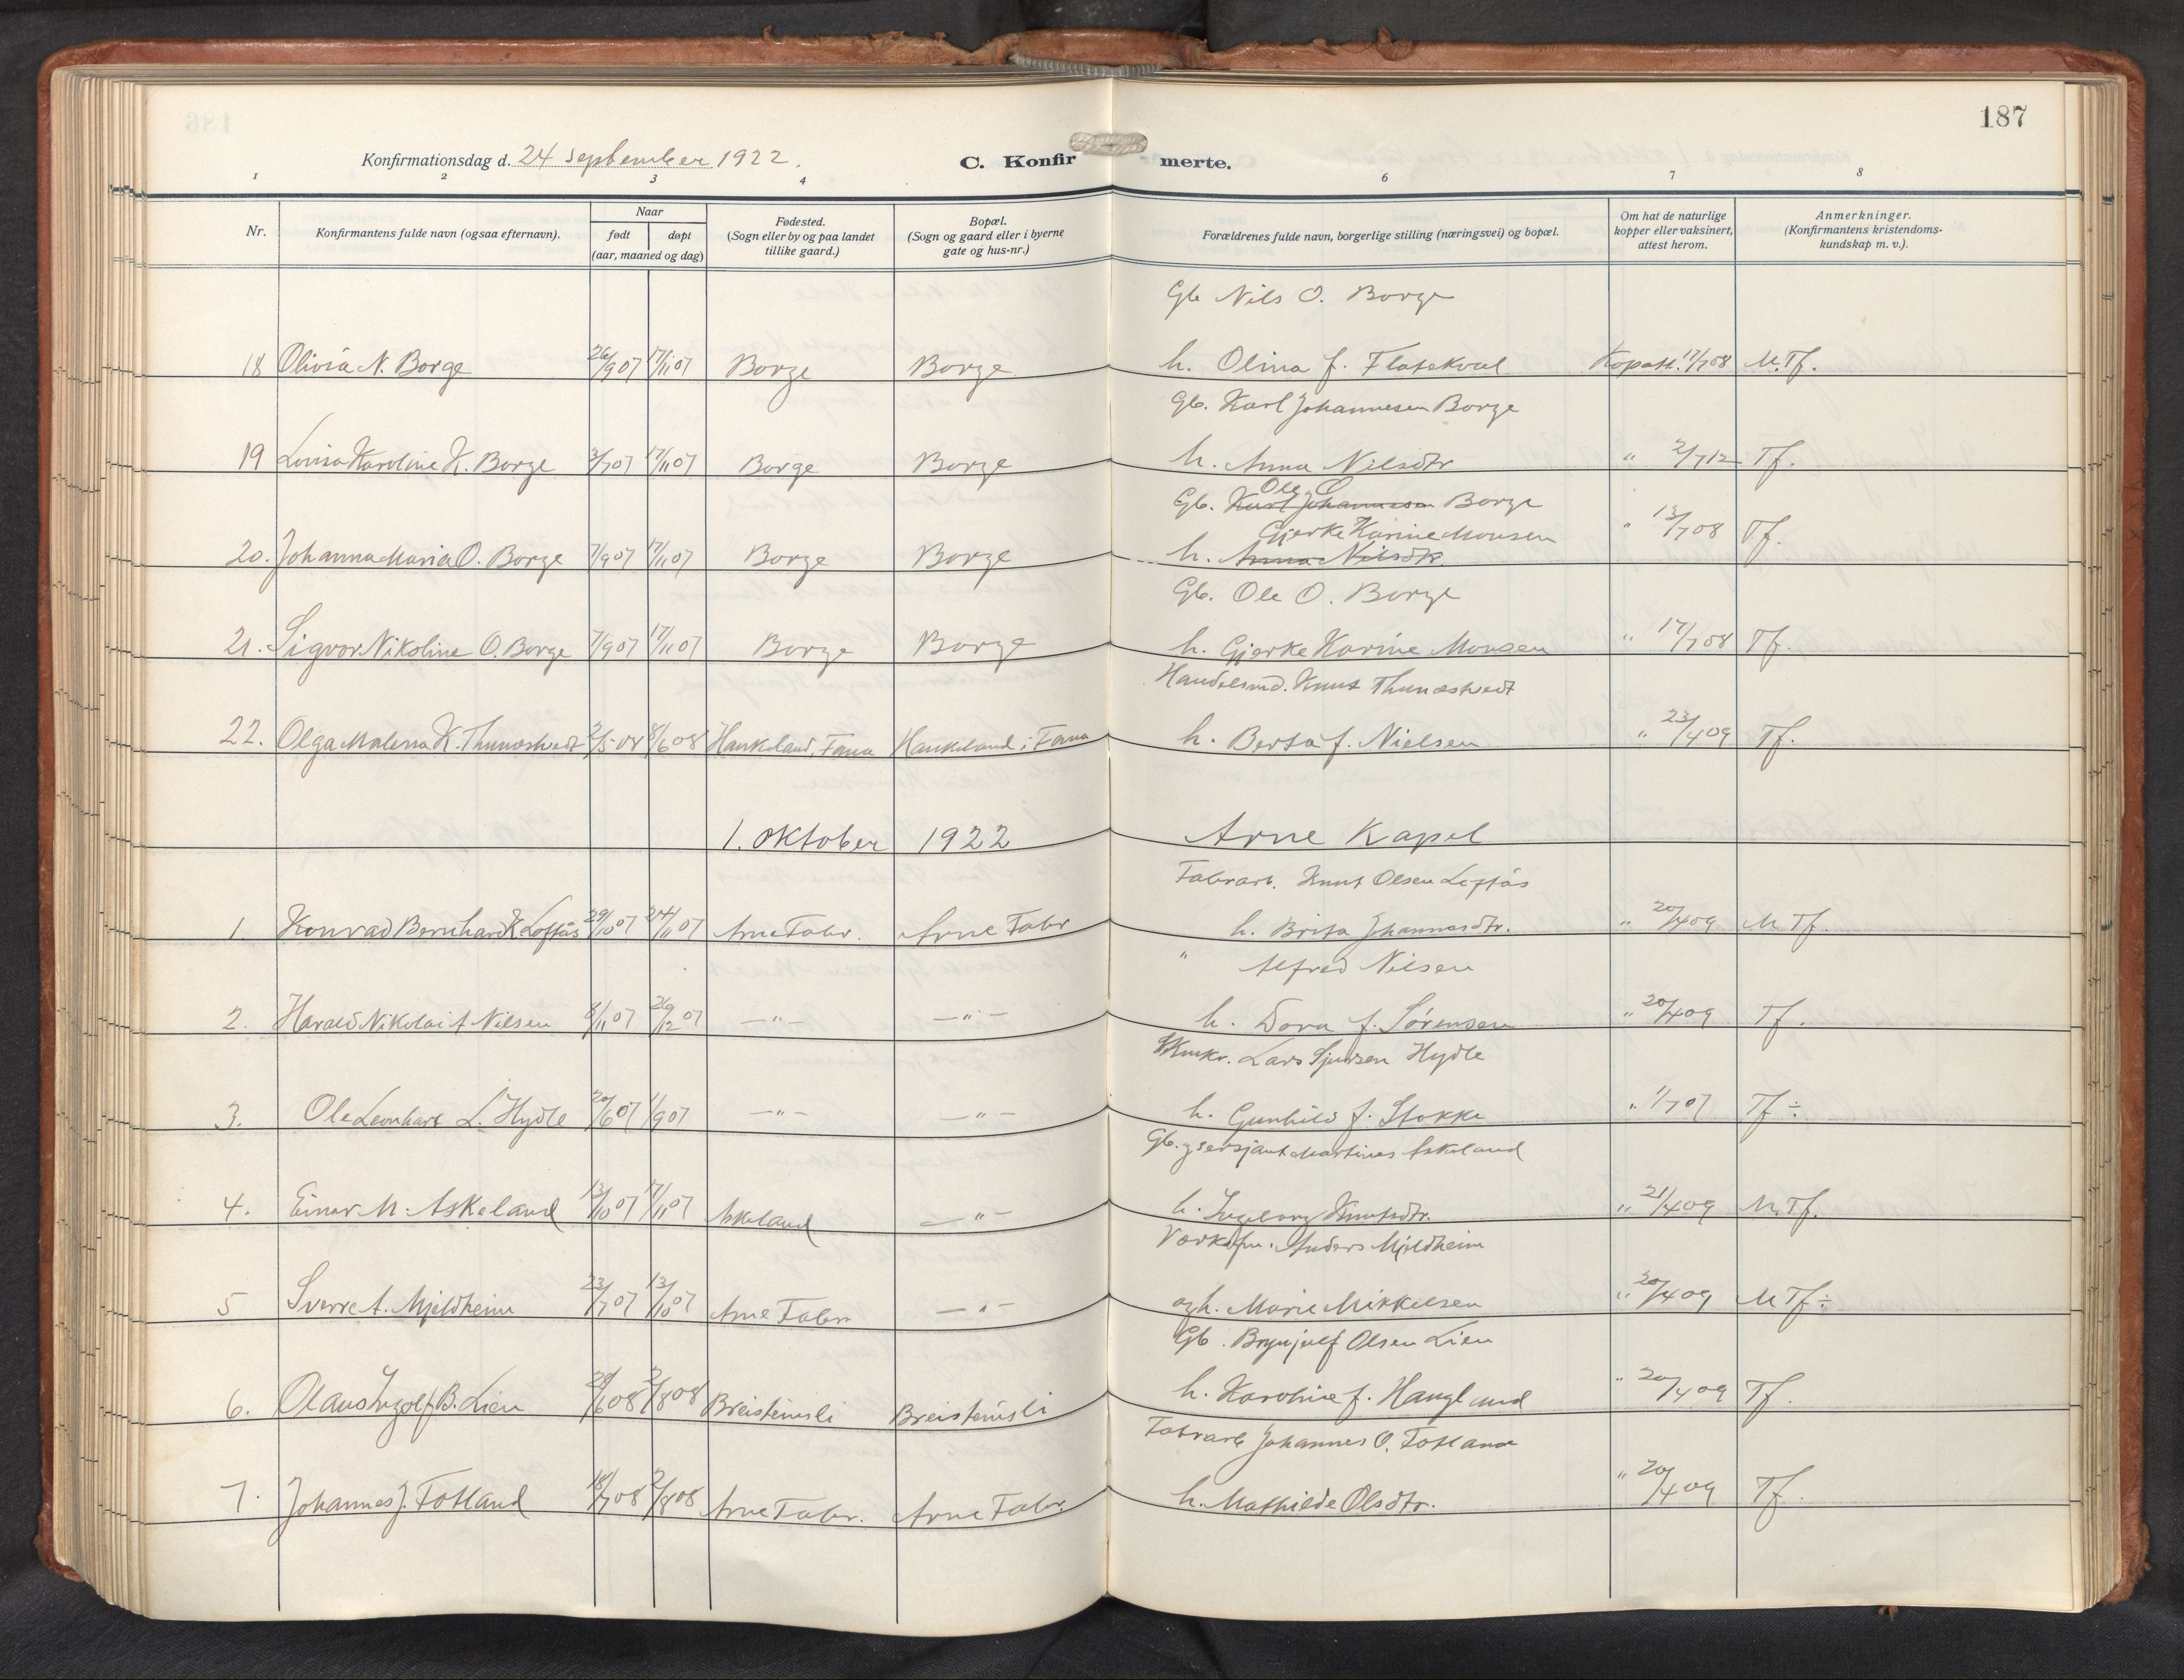 187
Konfirmationsdag d. 24 september 1922.
C. Konfirmerte.
1 2 3 4 6 7 8
Nr.
Konfirmantens fulde navn (ogsaa efternavn).
Naar
født døpt
(aar, maaned og dag)
Fødested.
(Sogn eller by og paa landet
tillike gaard.)
Bopæl.
(Sogn og gaard eller i byerne
gate og hus-nr.)
Forældrenes fulde navn, borgerlige stilling (næringsvei) og bopæl.
Om hat de naturlige
kopper eller vaksinert,
attest herom.
Anmerkninger.
(Konfirmantens kristendoms-
kundskap m. v.).
Gb Nils O. Borge
18 Olivia N. Borge 26/9 07 17/11 07 Borge Borge h. Olina f. Flatekval Kopatt. 17/7 08 M.Tf.
Gb. Karl Johannesen Borge
19 Lovisa Karoline K. Borge 3/7 07 17/11 07 Borge Borge h. Anna Nilsdtr " 2/7 12 Tf.
Ole O
Gb. Karl Johannesen Borge
Gjerke Karine Monsen
20. Johanna Maria O. Borge 7/9 07 17/11 07 Borge Borge h. Anna Nilsdtr. " 13/7 08 Tf.
Gb. Ole O. Borge
21. Sigvor Nikoline O. Borge 7/9 07 17/11 07 Borge Borge h. Gjerke Karine Monsen " 17/7 08 Tf.
Handelsmd. Knut Thunæstvedt
22. Olga Malena K. Thunæstvedt 2/5 08 8/6 08 Haukeland, Fana Haukeland i Fana h. Berta f. Nielsen " 23/4 09 Tf.
1. oktober 1922 Arne Kapel
Fabrarb. Knut Olsen Loftås
1. Konrad Bernhard K Loftås 29/10 07 24/11 07 Arne Fabr. Arne Fabr h. Brita Johannesdtr. " 20/4 09 M Tf.
" Alfred Nilsen
2. Harald Nikolai A Nilsen 8/11 07 26/12 07 —"— —"— h. Dora f. Sørensen " 20/4 09 Tf.
Skmkr. Lars Sjursen Hydle
3. Ole Leonhart L. Hydle 20/6 07 1/9 07 —"— —"— h. Gunhild f. Stokke " 1/7 07 Tf ÷
Gb. og sersjant Martinus Askeland
4. Einar M. Askeland 13/10 07 17/11 07 Askeland —"— h. Ingeborg Knutsdtr. " 21/4 09 M.Tf.
Værkfm. Anders Mjeldheim
5 Sverre A. Mjeldheim 23/7 07 13/10 07 Arne Fabr —"— og h. Marie Mikkelsen " 20/4 09 M Tf ÷
Gb. Brynjulf Olsen Lien
6. Olaus Ingolf B. Lien 28/6 08 2/8 08 Breisteinsli Breisteinsli h. Karoline f. Haugland " 20/4 09 Tf.
Fabrarb Johannes O. Totland
7. Johannes J. Totland 18/7 08 2/8 08 Arne Fabr. Arne Fabr. h. Mathilde Olsdtr. " 20/4 09 Tf.